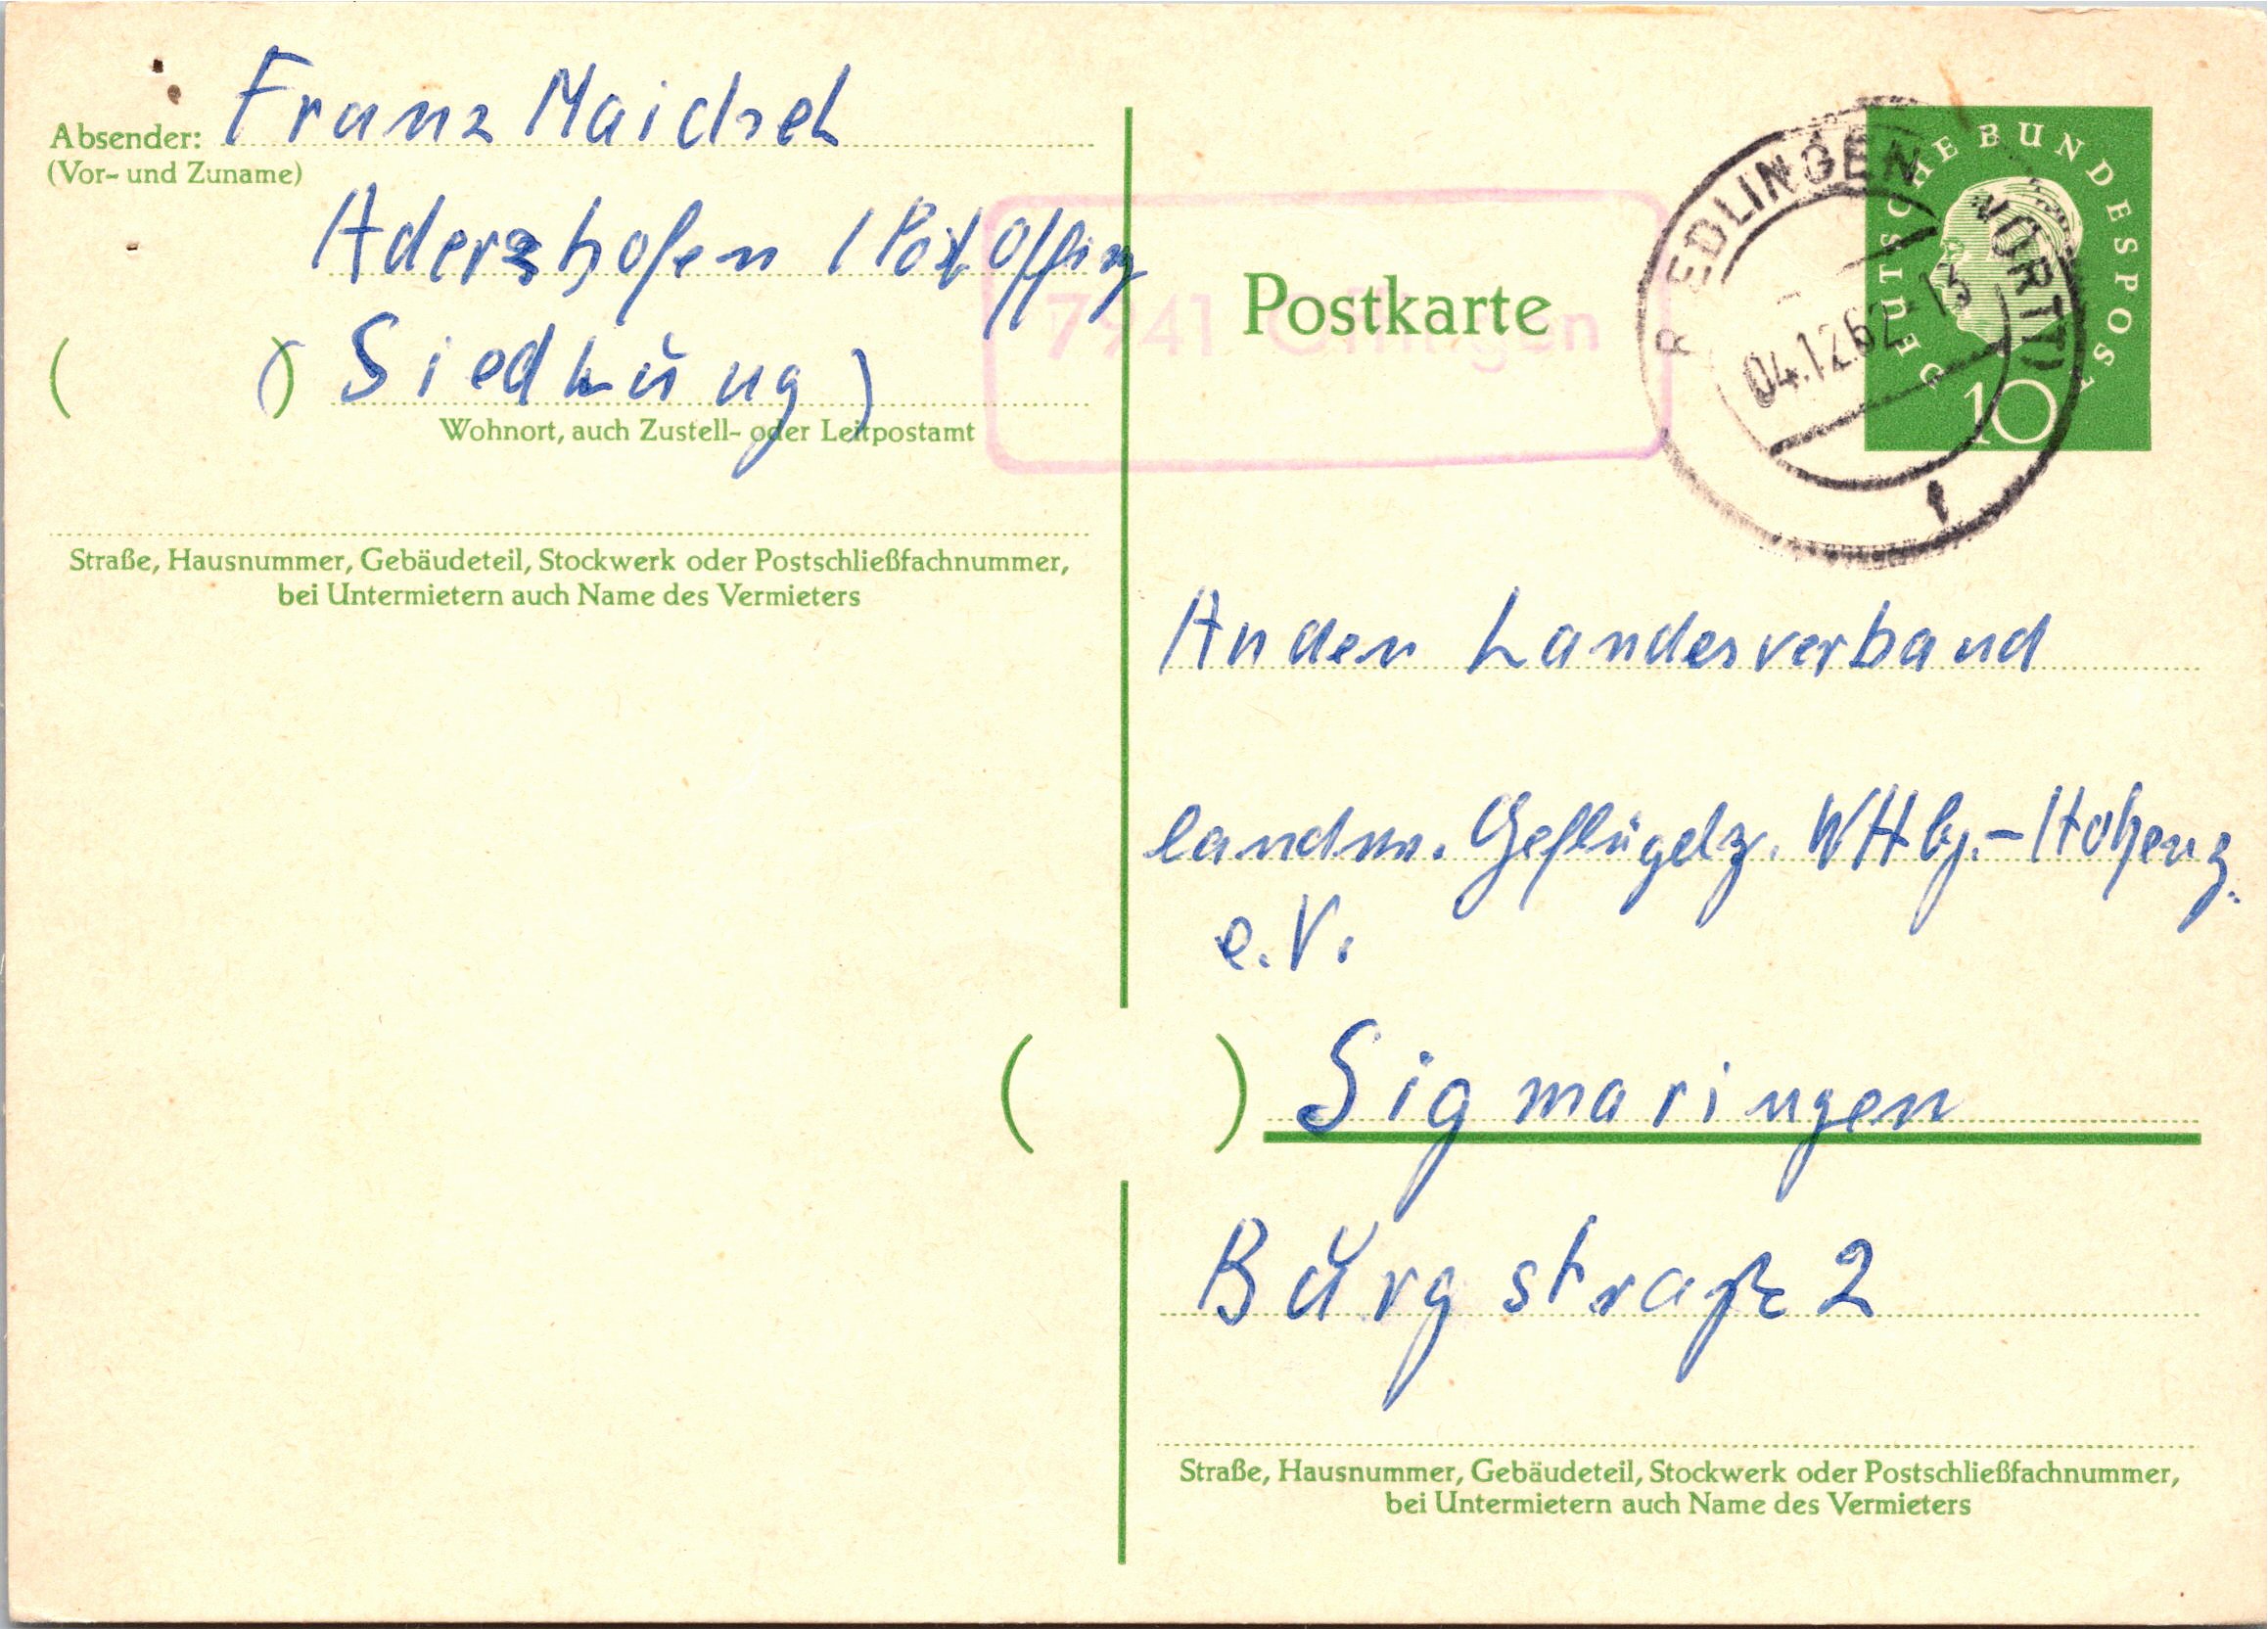 Absender: Franz Maichel
(Vor- und Zuname)
Aderzhofen (Post Offing
( ) Siedlung)
Wohnort, auch Zustell- oder Leitpostamt
Straße, Hausnummer, Gebäudeteil, Stockwerk oder Postschließfachnummer,
bei Untermietern auch Name des Vermieters
7941 Offingen
Postkarte
RIEDLINGEN (WÜRTT)
04.12.62-13
1
DEUTSCHE BUNDESPOST
10
An den Landesverband
landw. Geflügelz. Wttbg.-Hohenz.
e.V.
( ) Sigmaringen
Burgstraße 2
Straße, Hausnummer, Gebäudeteil, Stockwerk oder Postschließfachnummer,
bei Untermietern auch Name des Vermieters